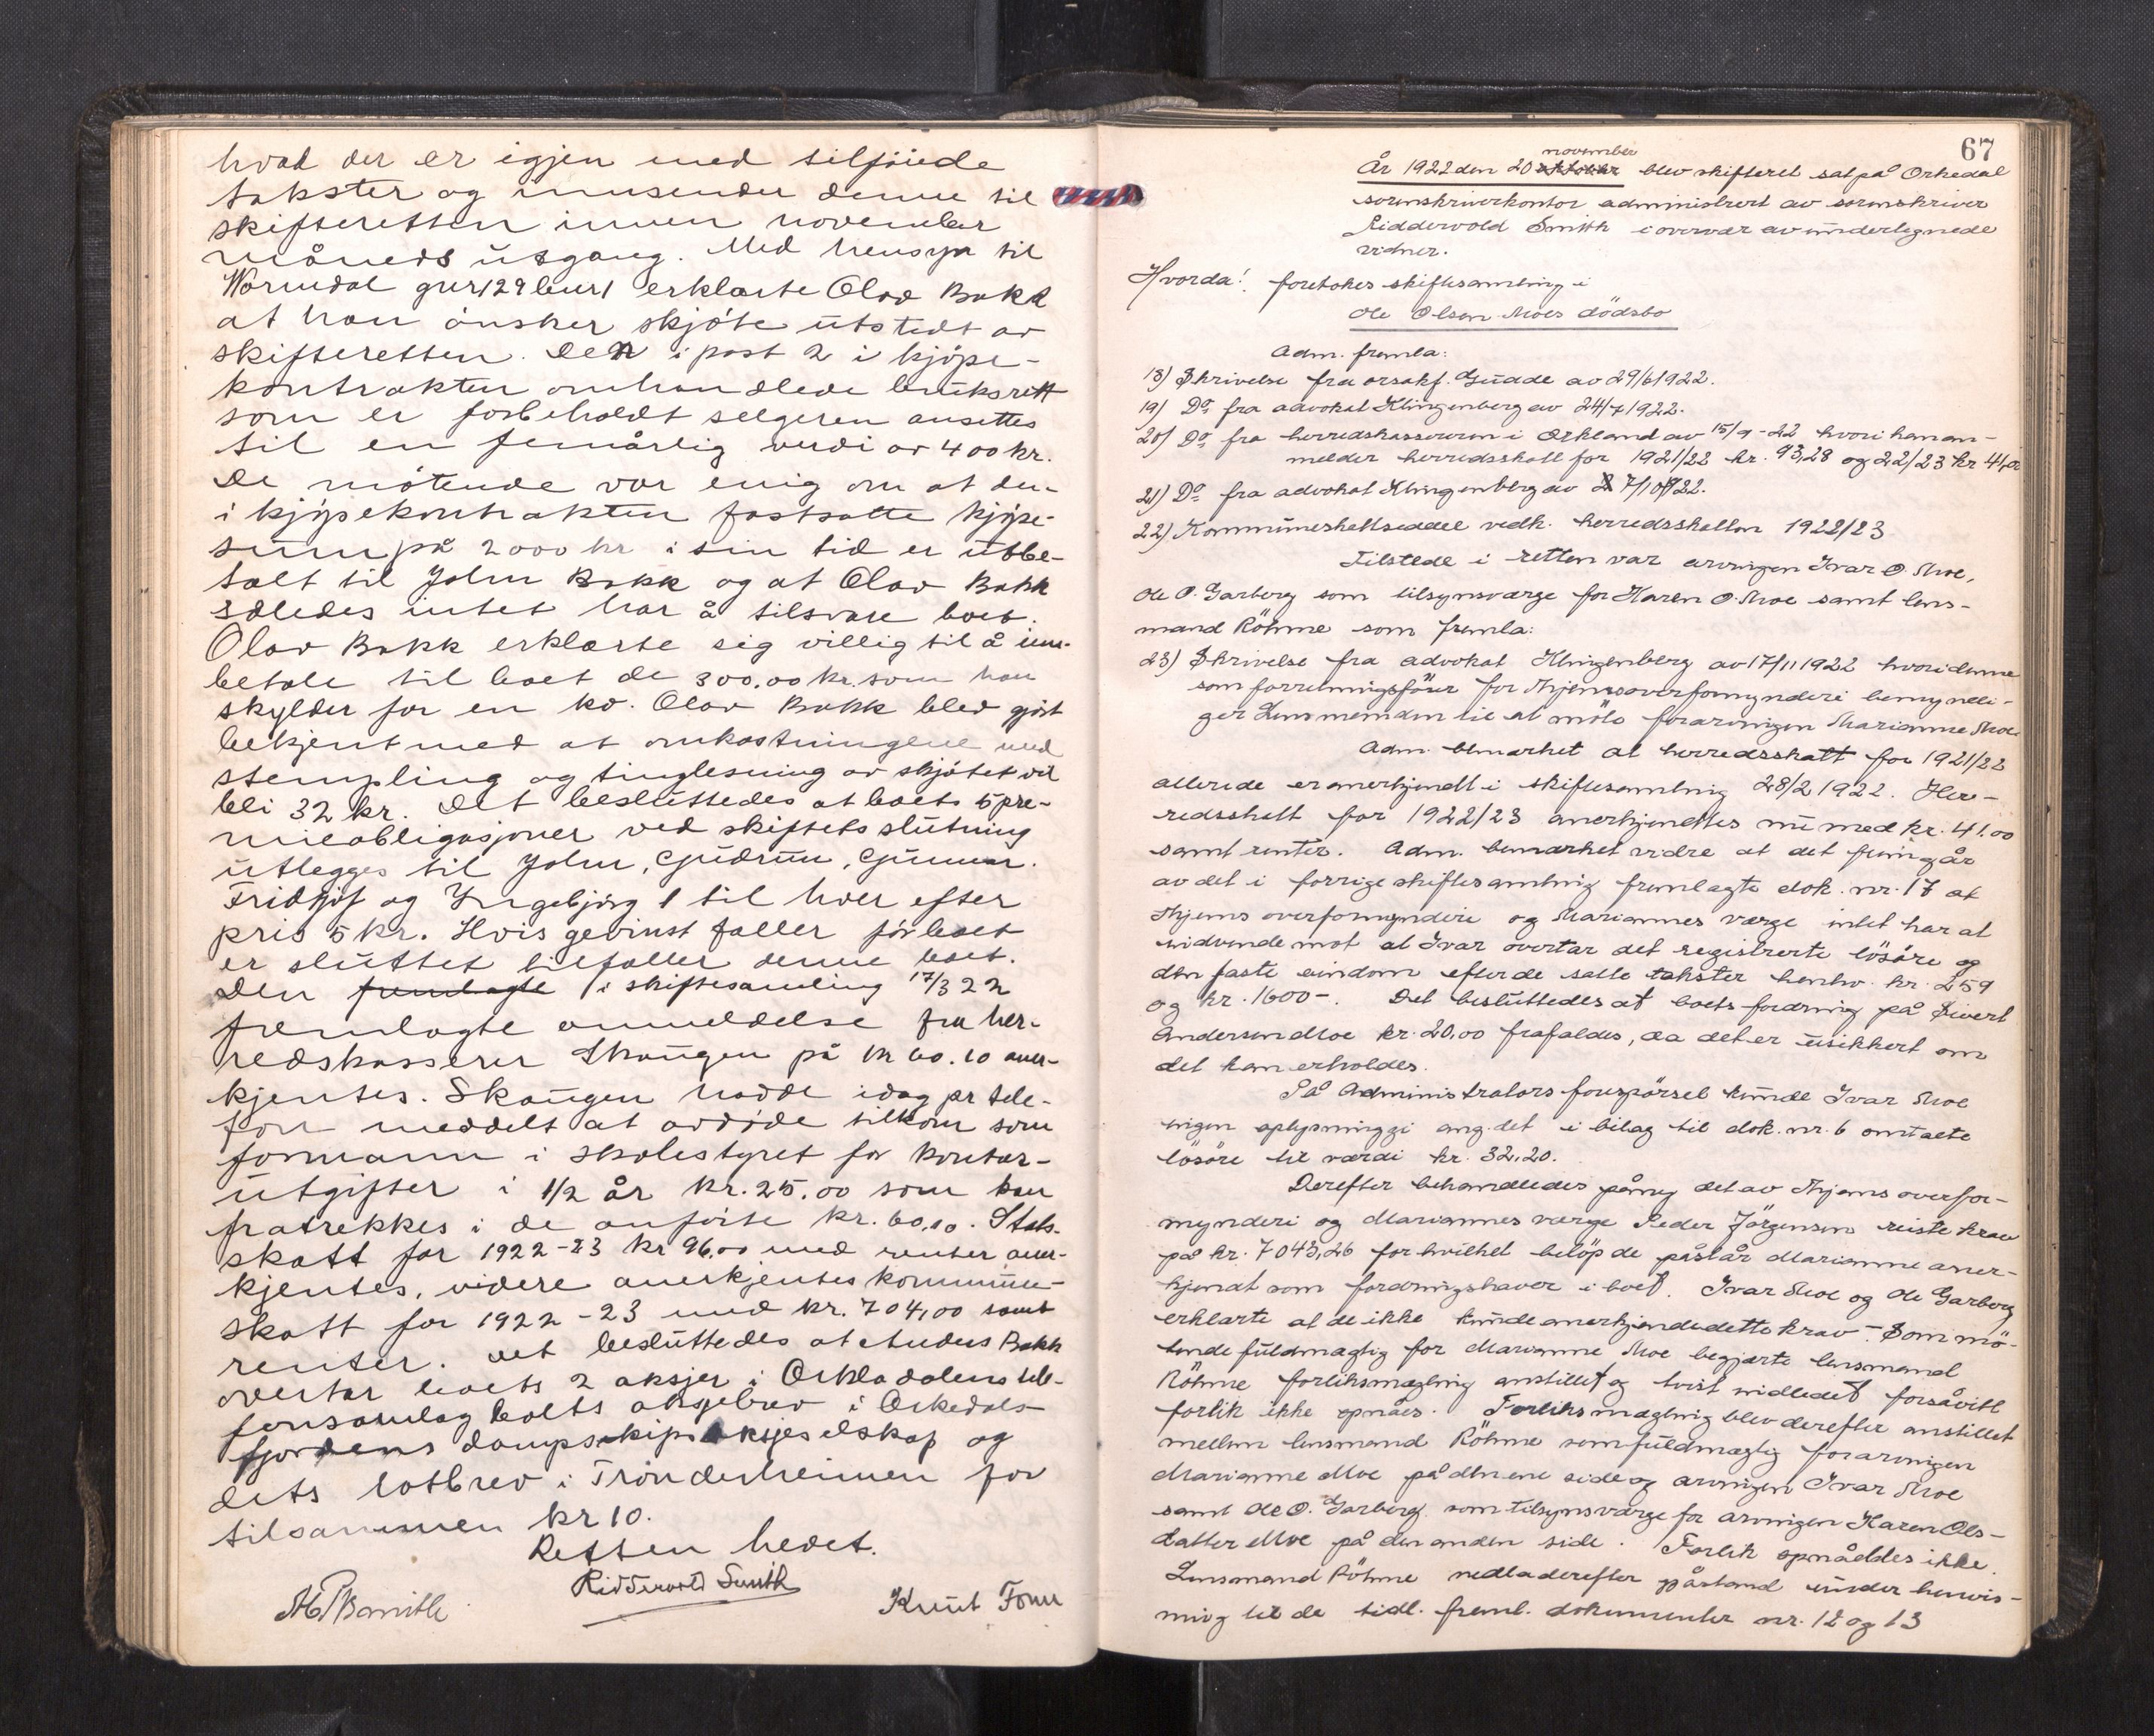 hvad der er igjen med tilføiede
takster og innsender denne til
skifteretten innen november
måneds utgang. Med hensyn til
Wormdal gnr 129 bnr 1 erklærte Olav Bakk
at han ønsker skjøte utstedt av
skifteretten. Den i post 2 i kjøpe-
kontrakten omhandlede bruksrett
som er forbeholdt selgeren ansettes
til en femårlig verdi av 400 kr.
De møtende var enig om at den
i kjøpekontrakten fastsatte kjøpe-
sum på 2000 kr i sin tid er utbe-
talt til John Bakk og at Olav Bakk
således intet har å tilsvare boet.
Olav Bakk erklærte sig villig til å inn-
betale til boet de 300.00 kr. som han
skylder for en ko. Olav Bakk blev gjort
bekjent med at omkostningene med
stempling og tinglesning av skjøtet vil
bli 32 kr. Det besluttedes at boets 5 pre-
mieobligasjoner ved skiftets slutning
utlegges til John, Gudrun, Gunnar.
Fridtjof og Ingebjørg 1 til hver efter
pris 5 kr. Hvis gevinst faller før boet
er sluttet tilfaller denne boet.
Den fremlagte i skiftesamling 17/3 22
fremlagte anmeldelse fra her-
redskasserer Skaugen på kr 60.10 aner-
kjentes. Skaugen hadde idag pr tele-
fon meddelt at avdøde tilkom som
formann i skolestyret for kontor-
utgifter i 1/2 år kr. 25.00 som kan
fratrekkes i de anførte kr. 60,10. Stats-
skatt for 1922-23 kr 96.00 med renter aner-
kjentes, videre anerkjentes kommune-
skatt for 1922-23 med kr. 704,00 samt
renter. Det besluttedes at Anders Bakk
overtar boets 2 aksjer i Orkladalens tele-
fonsamlag boets aksjebrev i Orkedals-
fjordens dampskipsaksjeselskap og
dets lotbrev i Trønderheimen for
tilsammen kr 10.
Retten hevet.
Ridderwold Smith
Knut Fonn
67
november
År 1922 den 20 oktober blev skifteret sat på Orkedal
sorenskriverkontor administrert av sorenskriver
Ridderwold Smith i overvær av undertegnede
vidner.
Hvorda: foretokes skiftesamling i
Ole Olsen Moes dödsbo
Adm. fremla:
18) Skrivelse fra orsakf. Guade av 29/6 1922.
19) Do fra advokat Klingenberg av 24/7 1922.
20) Do fra herredskassereren i Orkland av 15/9-22 hvori han an-
melder herredsskatt for 1921/22 kr. 93,28 og 22/23 kr 41,00
21) Do fra advokat Klingenberg av 7/10 1922.
22) Kommuneskatteseddel vedk. herredsskatten 1922/23
Tilstede i retten var arvingen Ivar O. Moe,
Ole O. Garberg som tilsynsværge for Karen O. Moe samt lens-
mand Röhme som fremla:
23) Skrivelse fra advokat Klingenberg av 17/11 1922 hvori denne
som forretningsförer for Hjems overformynderi bemyndi-
ger Lensmanden til at möte for arvingen Marianne Moe.
Adm. bemærket at herredsskatt for 1921/22
allerede er anerkjendt i skiftesamling 28/2 1922. Her-
redsskatt for 1922/23 anerkjendtes nu med kr. 41.00
samt renter. Adm. bemærket vidre at det fremgår
av det i forrige skiftesamling fremlagte dok. nr. 17 at
Hjems overformynderi og Mariannes værge intet har at
indvende mot at Ivar overtar det registrerte lösöre og
den faste eiendom efter de satte takster henhv. kr. 259
og kr. 1600-. Det besluttedes at boets fordring på Sivert
Andersen Moe kr. 20,00 frafaldes, da det er usikkert om
det kan erholdes.
På Administrators forespörsel kunde Ivar Moe
ingen oplysning gi ang. det i bilag til dok. nr. 6 omtalte
lösöre til værdi kr. 32,20.
Derefter behandledes påny det av Hjems overfor-
mynderi og Mariannes værge Peder Jörgensen reiste krav
på kr. 7043,26 for hvilket belöp de påstår Marianne aner-
kjendt som fordringshaver i boet. Ivar Moe og Ole Garberg
erklærte at de ikke kunde anerkjende dette krav. Som mö-
tende fuldmægtig for Marianne Moe begjærte lensmand
Röhme forliksmægling anstillet og tvist indledet forsåvitt
forlik ikke opnåes. Forliksmægling blev derefter anstillet
mellem lensmand Röhme som fuldmægtig for arvingen
Marianne Moe på den ene side og arvingen Ivar Moe
samt Ole O. Garberg som tilsynsværge for arvingen Karen Ols-
datter Moe på den anden side. Forlik opnåddes ikke.
Lensmand Röhme nedla derefter påstand under henvis-
ning til de tidl. freml. dokumenter nr. 12 og 13